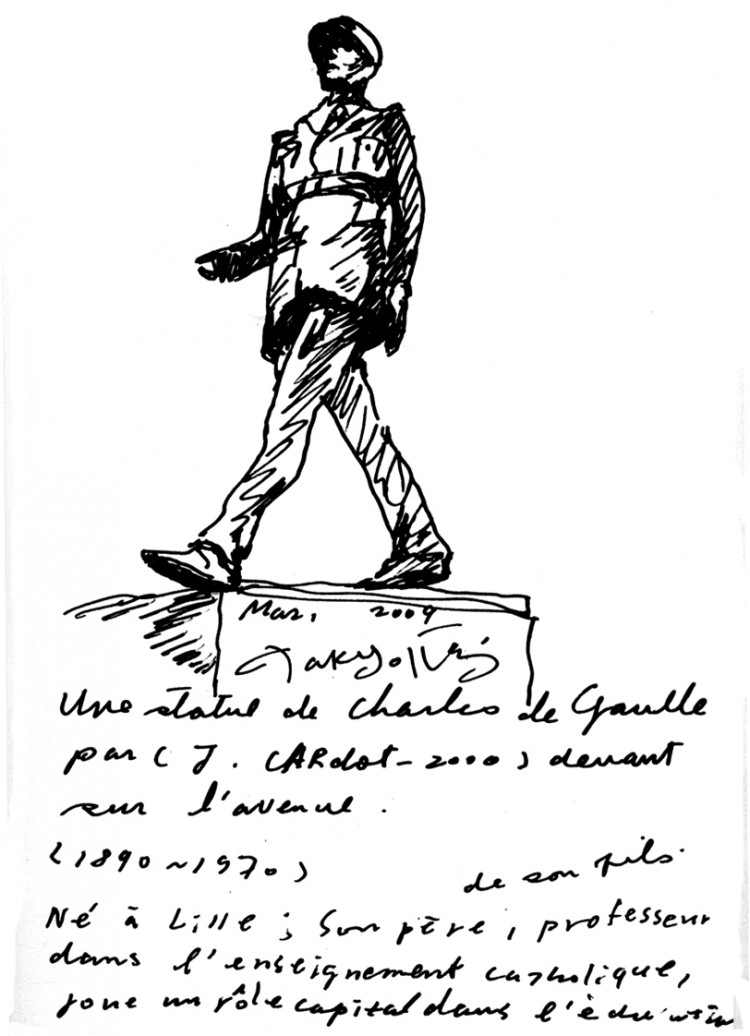 Mar. 2009
Une statue de Charles de Gaulle
par ( J. CARdot - 2000 ) devant
sur l'avenue.
(1890 ~ 1970)
de son fils.
Né à Lille ; Son père, professeur
dans l'enseignement catholique,
joue un rôle capital dans l'éducation